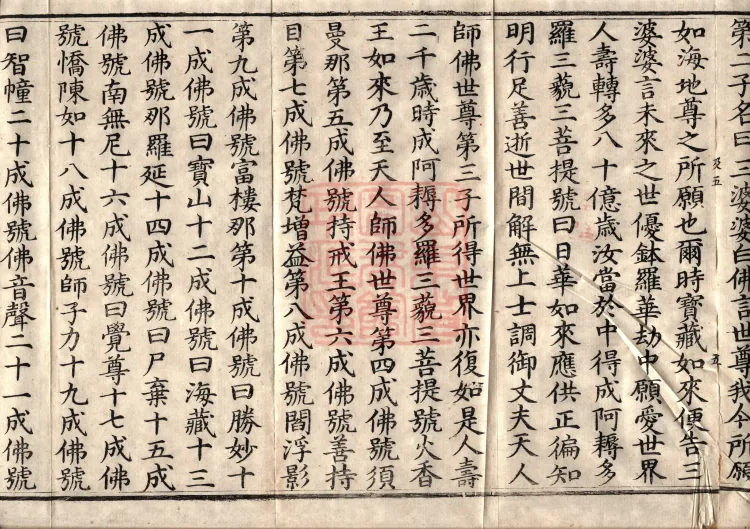 第二子名曰三婆婆白佛言世尊我今所願
如海地尊之所願也爾時寶藏如來便告三
婆婆言未來之世優鉢羅華劫中願愛世界
人壽轉多八十億歲汝當於中得成阿耨多
羅三藐三菩提號曰日華如來應供正徧知
明行足善逝世間解無上士調御丈夫天人
師佛世尊第三子所得世界亦復如是人壽
二千歲時成阿耨多羅三藐三菩提號火香
王如來乃至天人師佛世尊第四成佛號須
曼那第五成佛號持戒王第六成佛號善持
目第七成佛號梵增益第八成佛號閻浮影
第九成佛號富樓那第十成佛號曰勝妙十
一成佛號曰寶山十二成佛號曰海藏十三
成佛號那羅延十四成佛號曰尸棄十五成
佛號南無尼十六成佛號曰覺尊十七成佛
號憍陳如十八成佛號師子力十九成佛號
曰智幢二十成佛號佛音聲二十一成佛號
及五
五